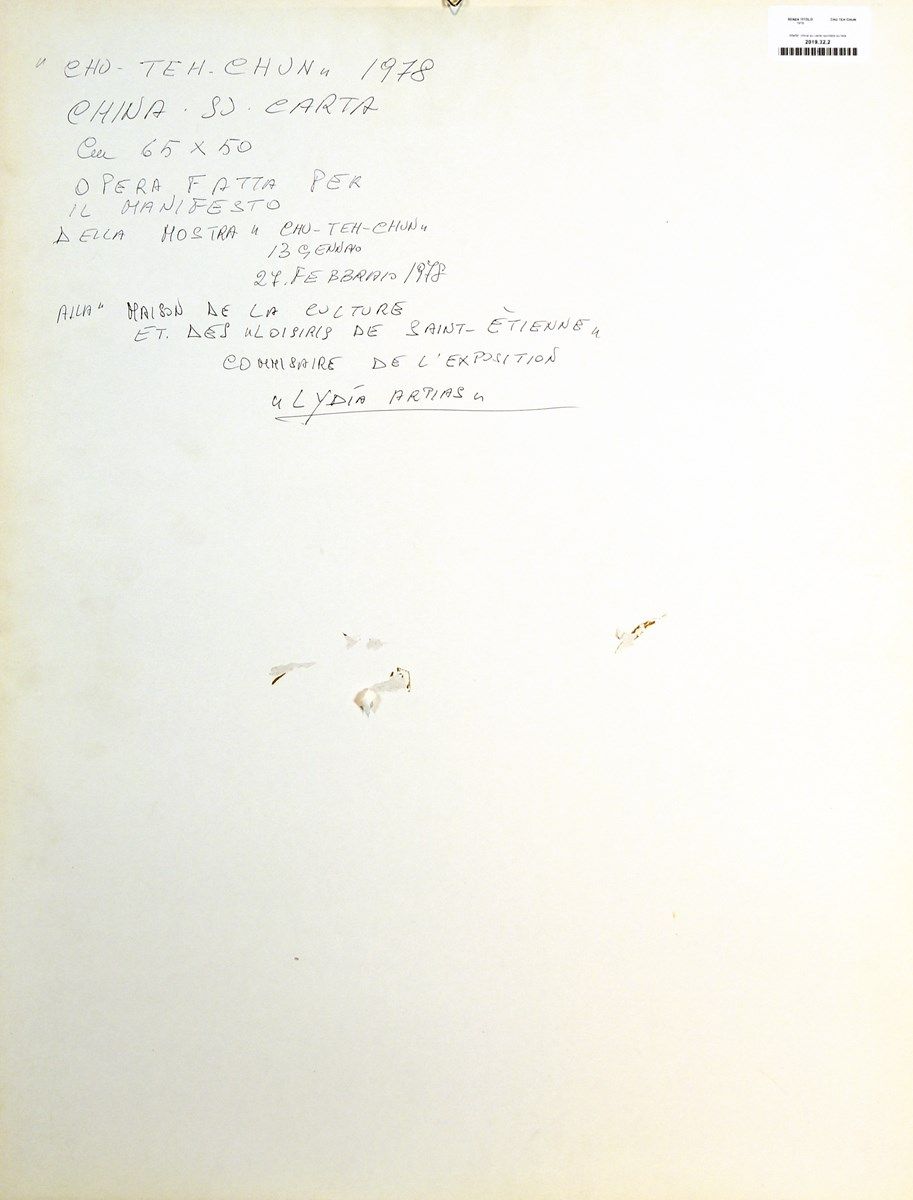 " CHU-TEH-CHUN " 1978
CHINA . SU . CARTA
Cm 65 X 50
OPERA FATTA PER
IL MANIFESTO
DELLA MOSTRA " CHU-TEH-CHUN "
13 GENNAIO
27. FEBBRAIO 1978
ALLA " MAISON DE LA CULTURE
ET. DES "LOISIRIS DE SAINT-ÈTIENNE "
COMMISAIRE DE L'EXPOSITION
"LYDÍA ARTIAS"
SENZA TITOLO CHU TEH CHUN
1978
2019.32.2